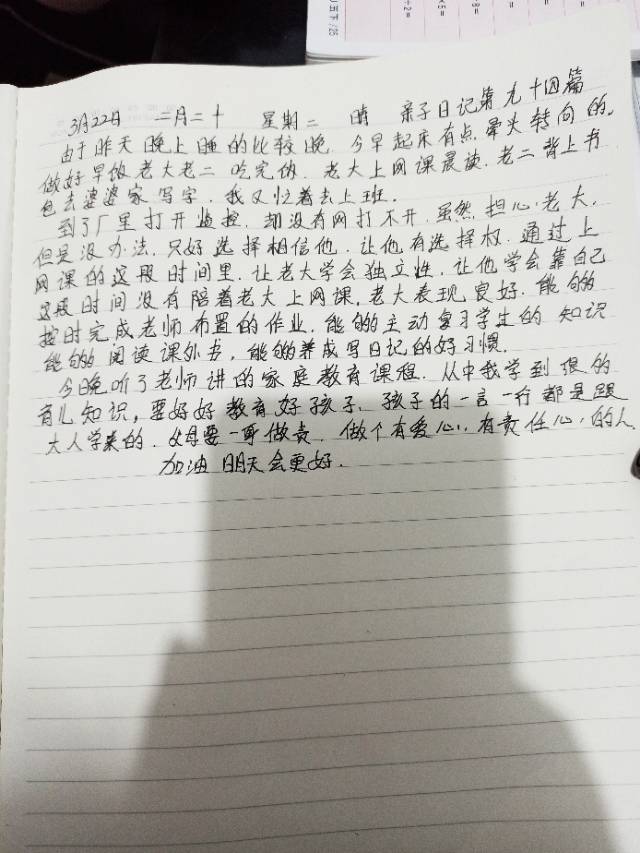 3月22日 二月二十 星期二 晴 亲子日记第九十四篇
由于昨天晚上睡的比较晚,今早起床有点晕头转向的。
做好早饭老大老二吃完饭,老大上网课晨读,老二背上书
包去婆婆家写字,我又忙着去上班。
到了厂里打开监控,却没有网打不开,虽然担心老大,
但是没办法,只好选择相信他,让他有选择权,通过上
网课的这段时间里,让老大学会独立性,让他学会靠自己
这段时间没有陪着老大上网课,老大表现良好,能够
按时完成老师布置的作业,能够主动复习学生的知识
能够阅读课外书,能够养成写日记的好习惯。
今晚听了老师讲的家庭教育课程,从中我学到很的
育儿知识,要好好教育好孩子,孩子的一言一行都是跟
大人学来的,父母要一尽做责,做个有爱心,有责任心的人,
加油 明天会更好.